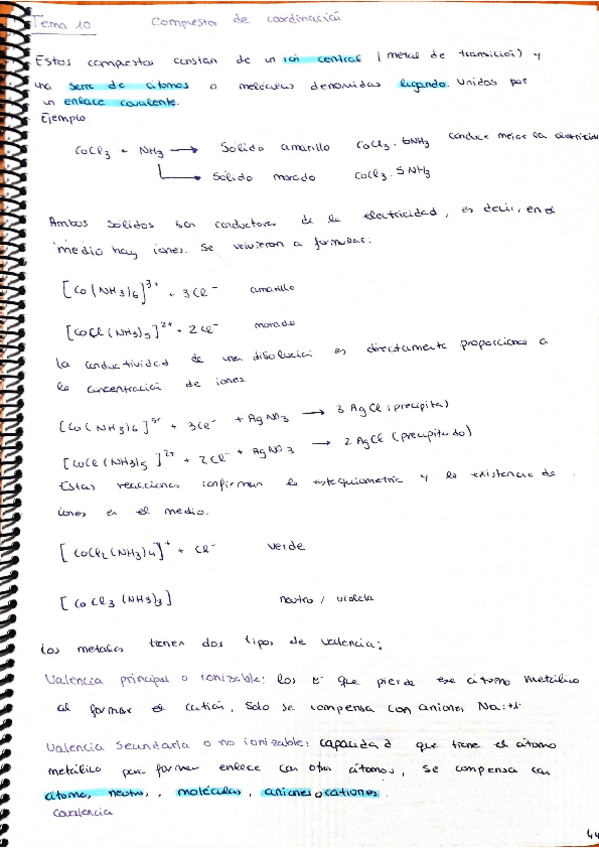 Tema 10 Compuestos de coordinación
Estos compuestos constan de un ion central (metal de transición) y
una serie de átomos o moléculas denominadas ligando. Unidos por
un enlace covalente.
Ejemplo
CoCl3 + NH3 → Sólido amarillo CoCl3 · 6NH3 conduce mejor la electricidad
→ Sólido morado CoCl3 · 5NH3
Ambos sólidos son conductores de la electricidad, es decir, en el
medio hay iones. Se volvieron a formular:
[Co(NH3)6]3+ + 3Cl- amarillo
[CoCl(NH3)5]2+ + 2Cl- morado
la conductividad de una disolución es directamente proporcional a
la concentración de iones
[Co(NH3)6]3+ + 3Cl- + AgNO3 → 3 AgCl (precipita)
[CoCl(NH3)5]2+ + 2Cl- + AgNO3 → 2 AgCl (precipitado)
Estas reacciones confirman la estequiometría y la existencia de
iones en el medio.
[CoCl2(NH3)4]+ + Cl- verde
[CoCl3(NH3)3] neutro / violeta
los metales tienen dos tipos de valencia:
Valencia principal o ionizable: los e- que pierde ese átomo metálico
al formar el catión, Solo se compensa con aniones Na:+1
Valencia Secundaria o no ionizable: capacidad que tiene el átomo
metálico para formar enlace con otros átomos, se compensa con
átomos neutros, moléculas, aniones o cationes.
Covalencia